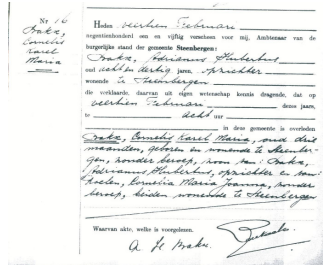 Nr 16
Bakx,
Cornelis
Karel
Maria
Heden veertien Februari
negentienhonderd een en vijftig verscheen voor mij, Ambtenaar van de
burgerlijke stand der gemeente Steenbergen:
Bakx, Adrianus Hubertus
oud acht en dertig jaren, opzichter
wonende te Steenbergen
die verklaarde, daarvan uit eigen wetenschap kennis dragende, dat op
veertien Februari dezes jaars,
te acht uur
in deze gemeente is overleden
Bakx, Cornelis Karel Maria, oud drie
maanden, geboren en wonende te Steenber-
gen, zonder beroep, zoon van: Bakx,
Adrianus Hubertus, opzichter en van:
Cornelia Maria Joanna, zonder
beroep, beiden wonende te Steenbergen
Waarvan akte, welke is voorgelezen.
A Bakx